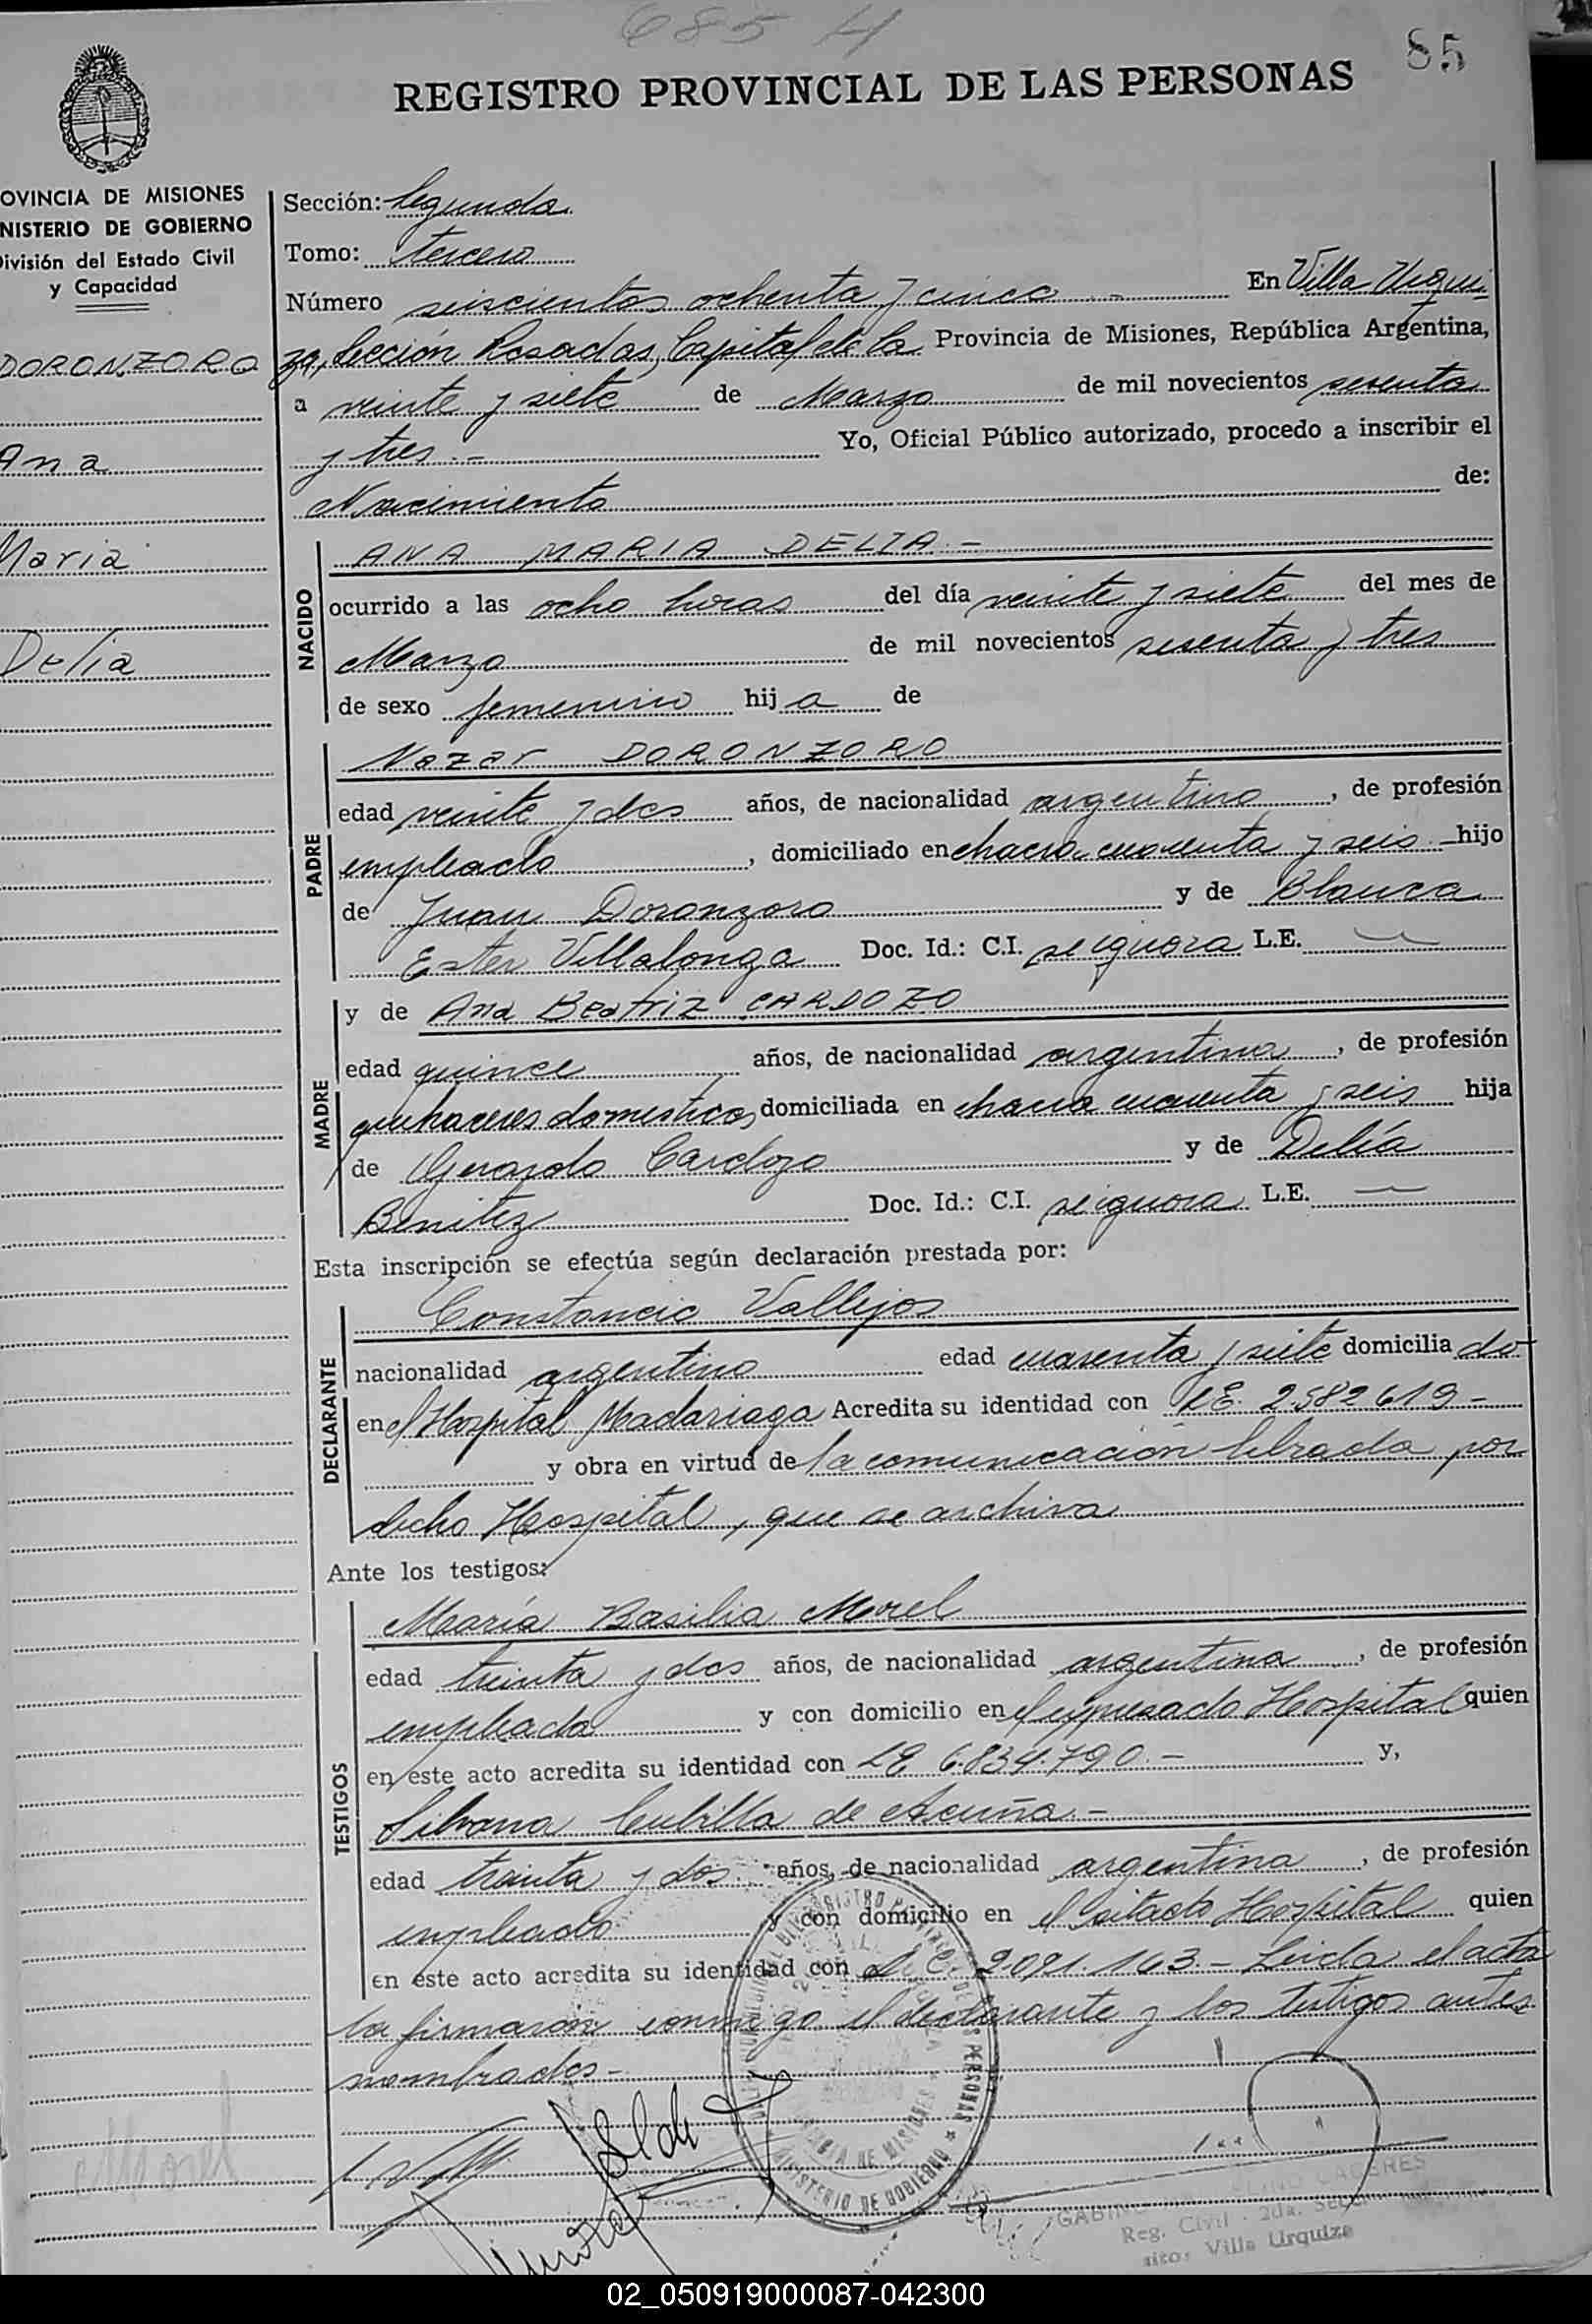 685 H
85
REGISTRO PROVINCIAL DE LAS PERSONAS
OVINCIA DE MISIONES
NISTERIO DE GOBIERNO
División del Estado Civil
y Capacidad
DORONZORO
Ana
Maria
Delia
Sección: Segunda
Tomo: tercero
Número seiscientos ochenta y cinco . - En Villa Urqui
za, Sección Posadas, Capital de la Provincia de Misiones, República Argentina,
a veinte y siete de Marzo de mil novecientos sesenta
y tres.- Yo, Oficial Público autorizado, procedo a inscribir el
Nacimiento de:
NACIDO
ANA MARIA DELIA.-
ocurrido a las ocho horas del día veinte y siete del mes de
Marzo de mil novecientos sesenta y tres
de sexo femenino hija de
PADRE
Nazar DORONZORO
edad veinte y dos años, de nacionalidad argentino, de profesión
empleado, domiciliado en chacra cuarenta y seis - hijo
de Juan Doronzoro y de Blanca
Ester Villalonga Doc. Id.: C.I. se ignora L.E. —
MADRE
y de Ana Beatriz CARDOZO
edad quince años, de nacionalidad argentina, de profesión
quehaceres domesticos domiciliada en chacra cuarenta y seis hija
de Gerardo Cardozo y de Delía
Benitez Doc. Id.: C.I. se ignora L.E. —
Esta inscripción se efectúa según declaración prestada por:
DECLARANTE
Constancio Vallejos
nacionalidad argentino edad cuarenta y siete domiciliado
en el Hospital Madariaga Acredita su identidad con LE. 2.582.619-
y obra en virtud de la comunicación librada por
dicho Hospital, que se archiva
Ante los testigos:
TESTIGOS
María Basilia Morel
edad treinta y dos años, de nacionalidad argentina, de profesión
empleada y con domicilio en el expresado Hospital quien
en este acto acredita su identidad con LE 6.834.790.- y,
Silvana Cubilla de Acuña.-
edad treinta y dos años, de nacionalidad argentina, de profesión
empleado y con domicilio en el citado Hospital quien
en este acto acredita su identidad con L.C. 2091.163.- Leída el acta
la firmaron conmigo el declarante y los testigos antes
nombrados-
Morel
MINISTERIO DE GOBIERNO
CACERES
Reg. Civil - 2da. Secc.
Villa Urquiza
02_050919000087-042300